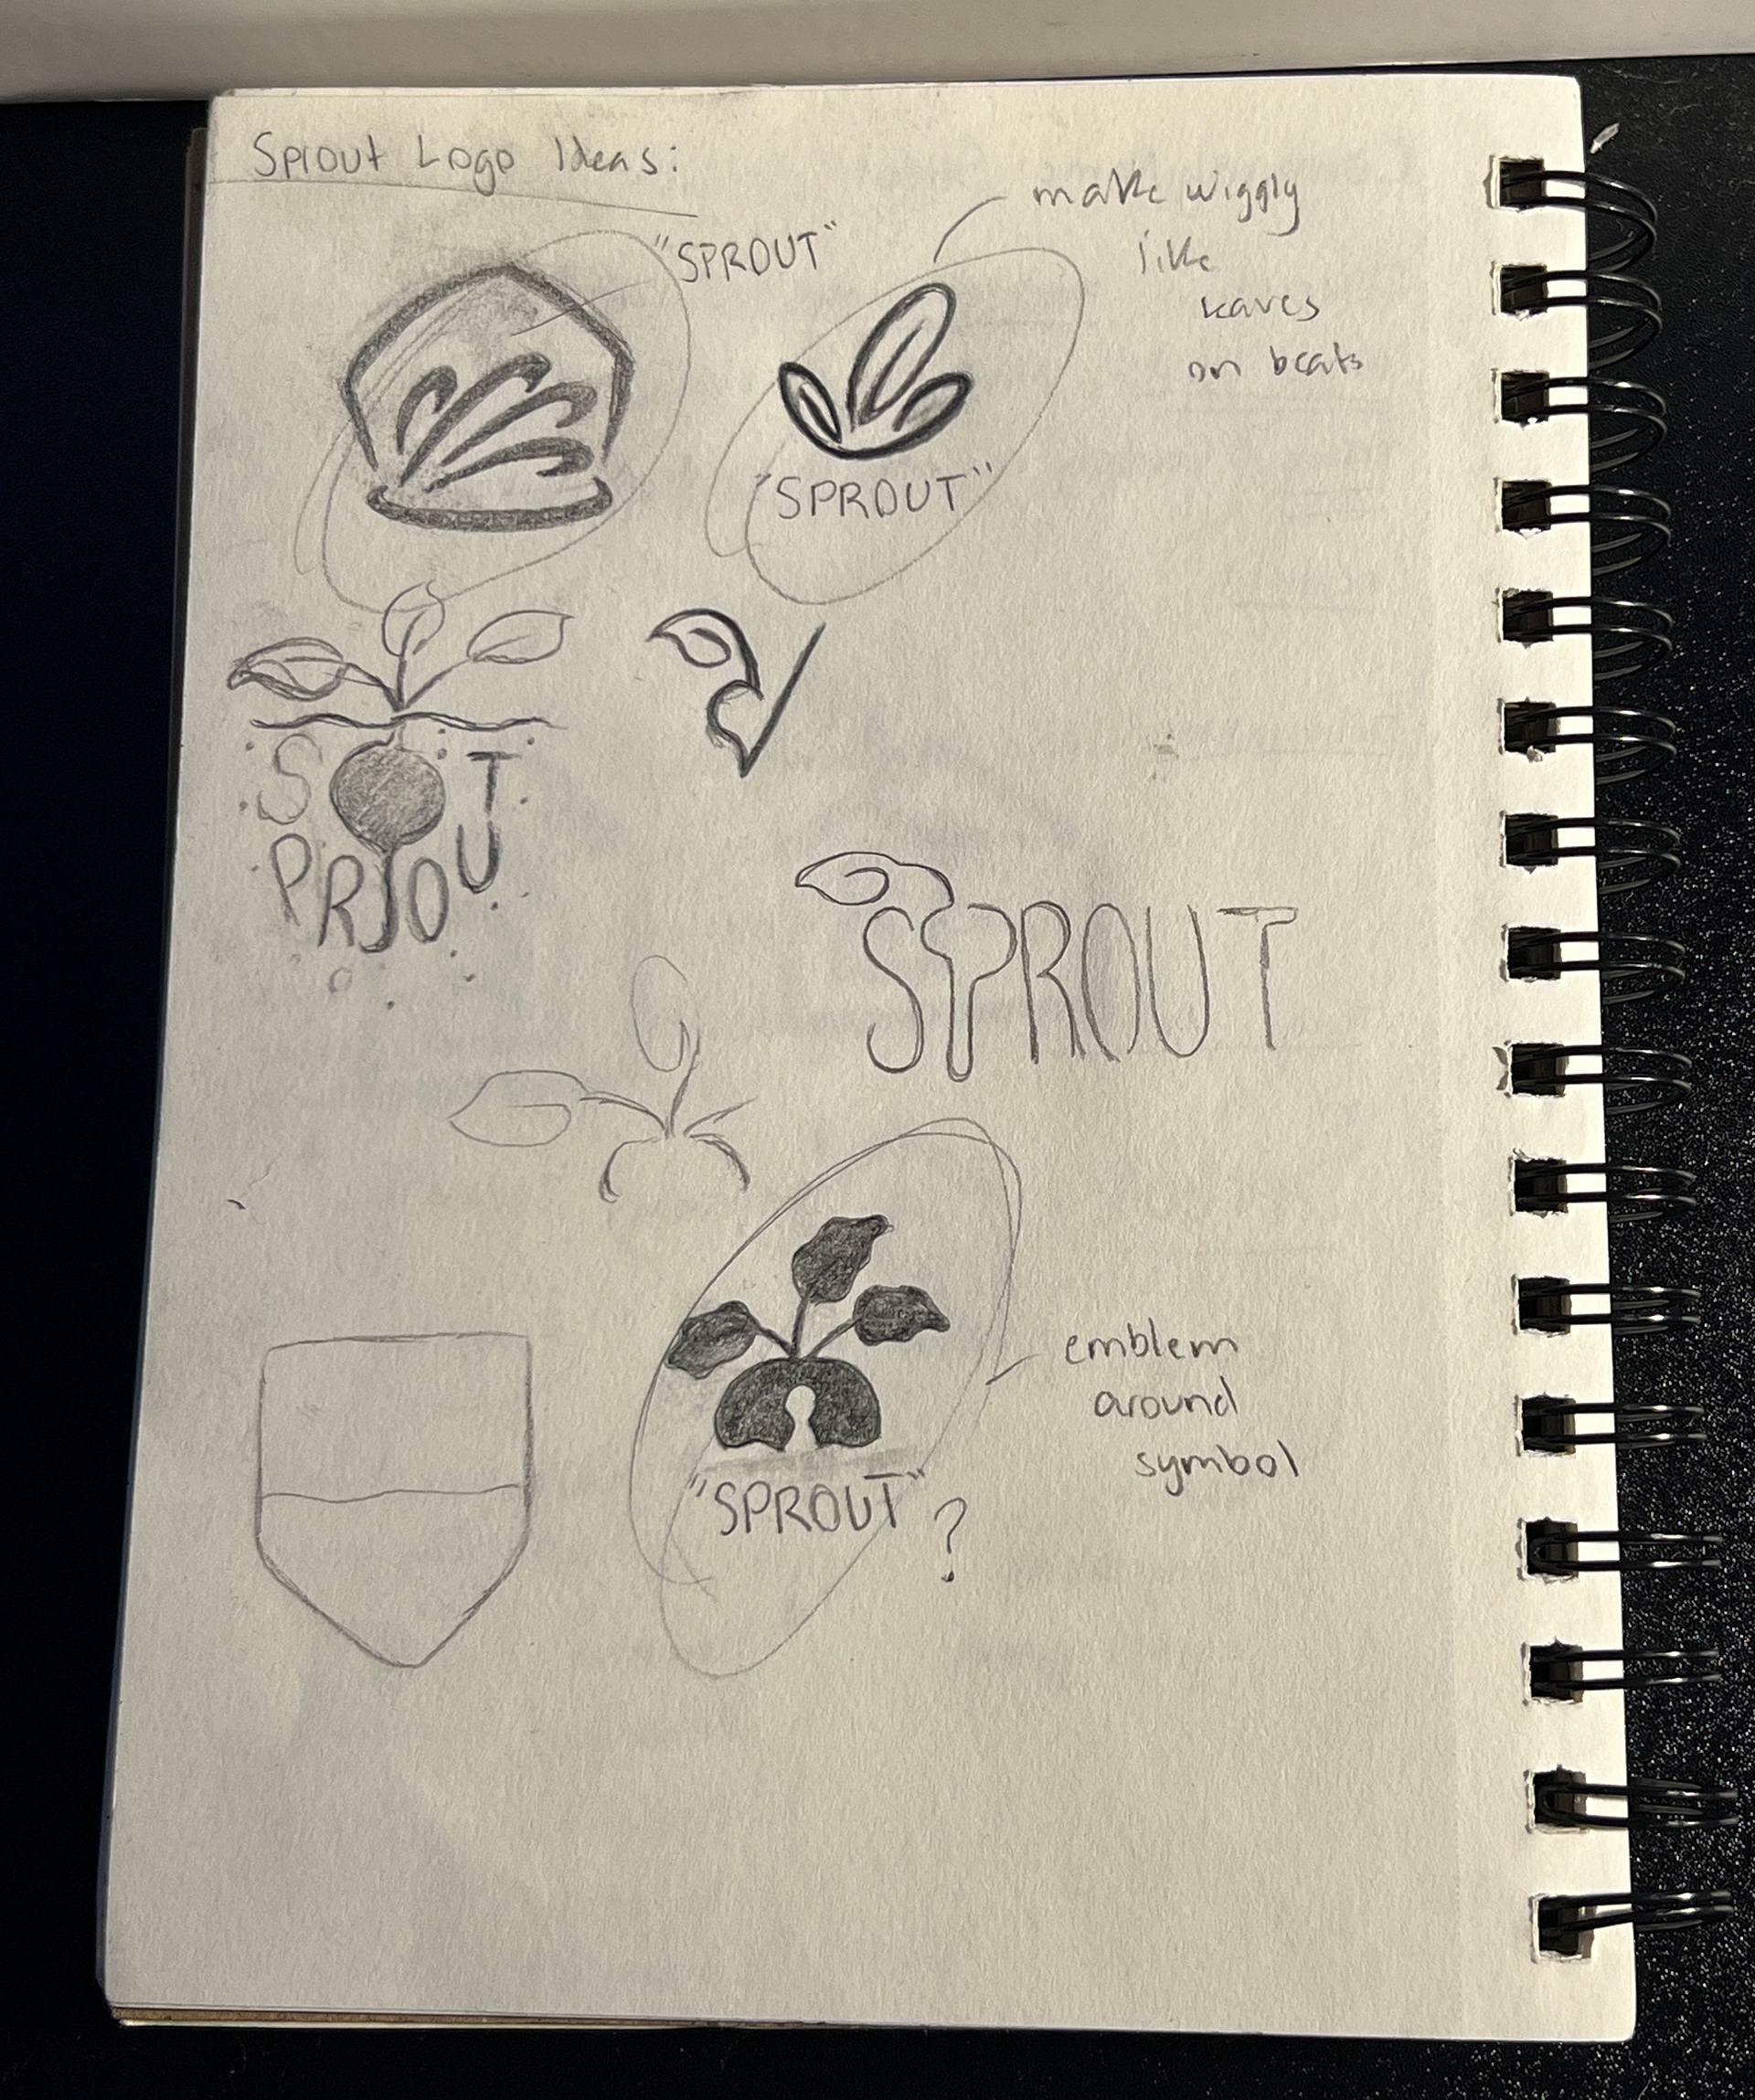 Sprout Logo Ideas:
"SPROUT"
make wiggly
like
leaves
on beats
"SPROUT"
S T
PROU
SPROUT
emblem
around
symbol
"SPROUT"?